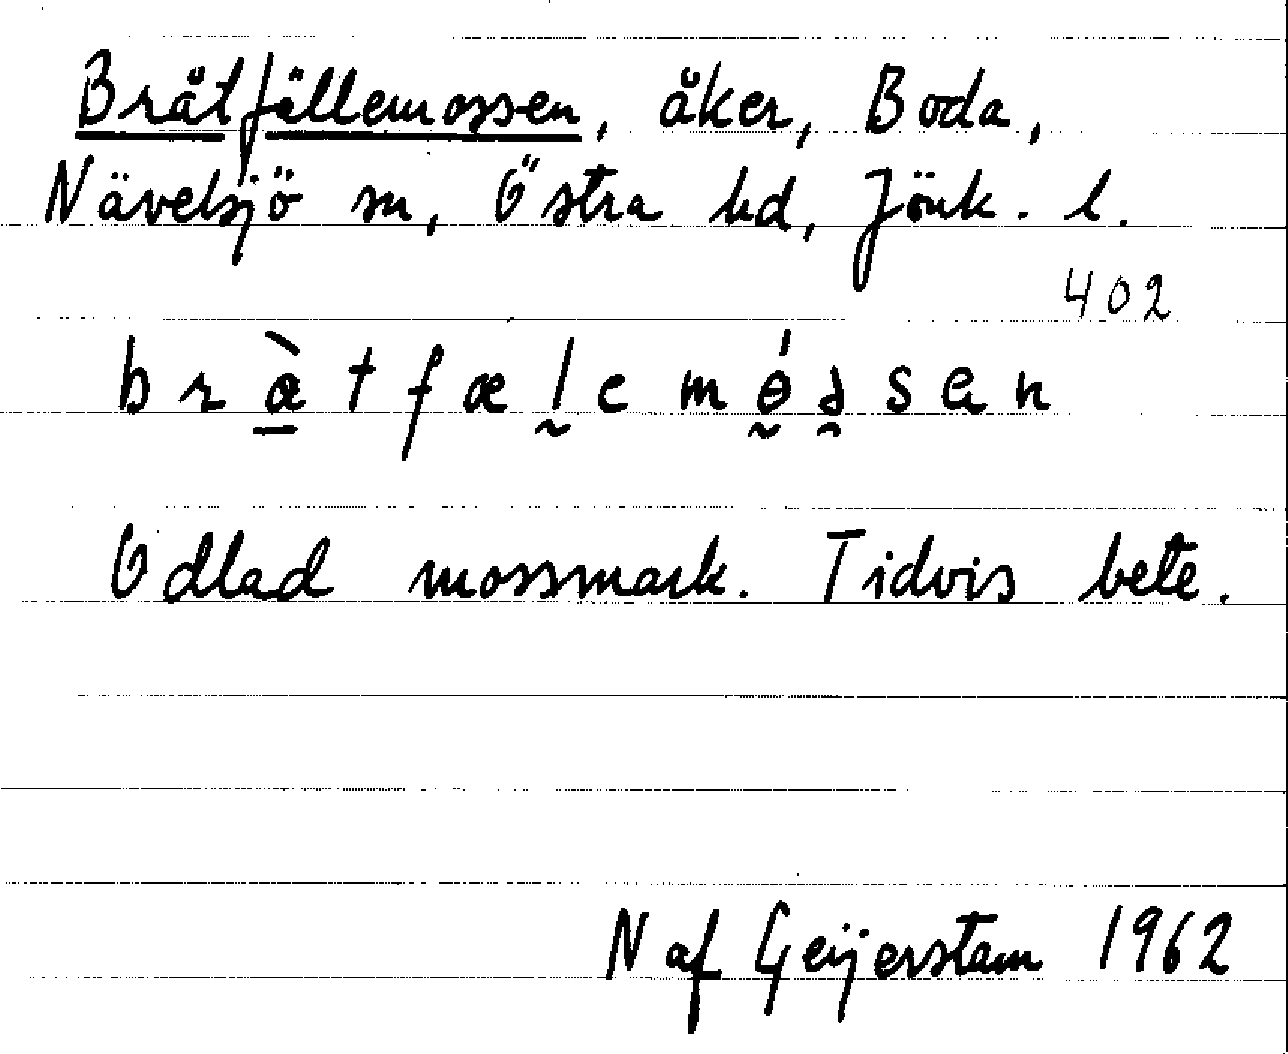 Bråtfällemossen, åker, Boda,
Nävelsjö sn, Östra hd, Jönk. l.
402
Odlad mossmark. Tidvis bete.
N af Geijerstam 1962